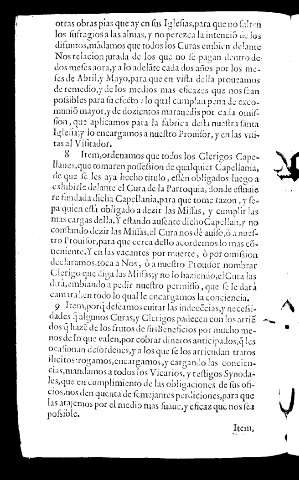 otras obras pias que ay en sus Iglesias, para que no falten
los sufragios a las almas, y no perezca la intenciō de los
difuntos, mādamos que todos los Curas embien delante
Nos relacion jurada de los que no se pagan dentro de
dos meses aora, y a lo adelāte cada dos años por los me-
ses de Abril, y Mayo, para que en vista della proueamos
de remedio, y de los medios mas eficazes que nos sean
possibles para su efecto: lo qual cumplan pena de exco-
munió mayor, y de dozientos marauedis por cada omis-
sion, que aplicamos para la fabrica de la nuestra santa
Iglesia; y lo encargamos a nuestro Prouisor, y en las visi-
tas al Visitador.
8 Item, ordenamos que todos los Clerigos Cape-
llanes, que tomaren possession de qualquier Capellania,
de que se les aya hecho titulo, estēn obligados luego a
exhibirle delante el Cura de la Parroquia, donde estuuie
re fundada dicha Capellania, para que tome razon, y se-
pa quien està obligado a dezir las Missas, y cumplir las
mas cargas della. Y estando ausente dicho Capellan, y no
constando dezir las Missas, el Cura nos dè auiso, ò a nues-
tro Prouisor, para que cerca dello acordemos lo mas cō-
ueniente. Y en las vacantes por muerte, ò por omission
declaramos toca a Nos, ò a nuestro Prouisor nombrar
Clerigo que diga las Missas; y no lo haziendo, el Cura las
dirà, embiando a pedir nuestro permisso, que se le darà
con todo lo qual le encargamos la conciencia.
9 Item, porq̄ desseamos euitar las indecēcias, y necessi-
dades q̄ algunos Curas, y Clerigos padecen con los arriē
dos q̄ hazē de los frutos de sus Beneficios por mucho me-
nos de lo que valen, por cobrar dineros anticipados, q̄ les
ocasionan desordenes, y a los que se los arriendan tratos
ilicitos: rogamos, encargamos, y cargando las concien-
cias, mandamos a todos los Vicarios, y testigos Synoda-
les, que en cumplimiento de las obligaciones de sus ofi-
cios, nos den quenta de semejantes perdiciones, para que
las atajemos por el medio mas suaue, y eficaz que nos sea
possible.
Item,